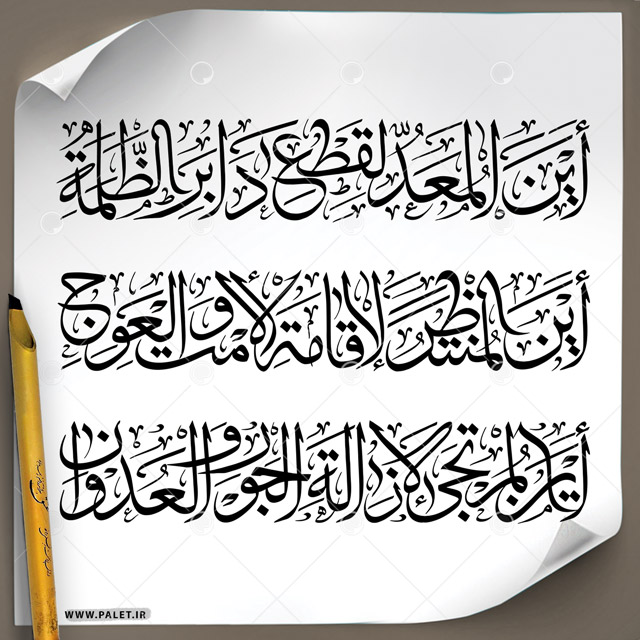 أين المعدّ لقطع دابر الظّلمة
أين المنتظر لاقامة الأمت و العوج
أين المرتجى لازالة الجور و العدوان
WWW.PALET.IR